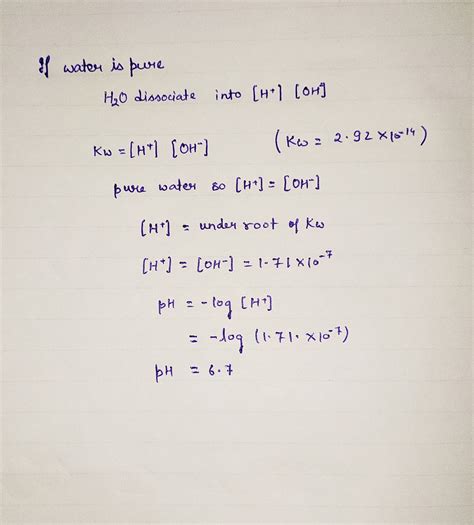 If water is pure
H2O dissociate into [H+] [OH-]
Kw = [H+] [OH-] (Kw = 2.92 x 10-14)
pure water so [H+] = [OH-]
[H+] = under root of Kw
[H+] = [OH-] = 1.71 x 10-7
pH = -log [H+]
= -log (1.71. x10-7)
pH = 6.7